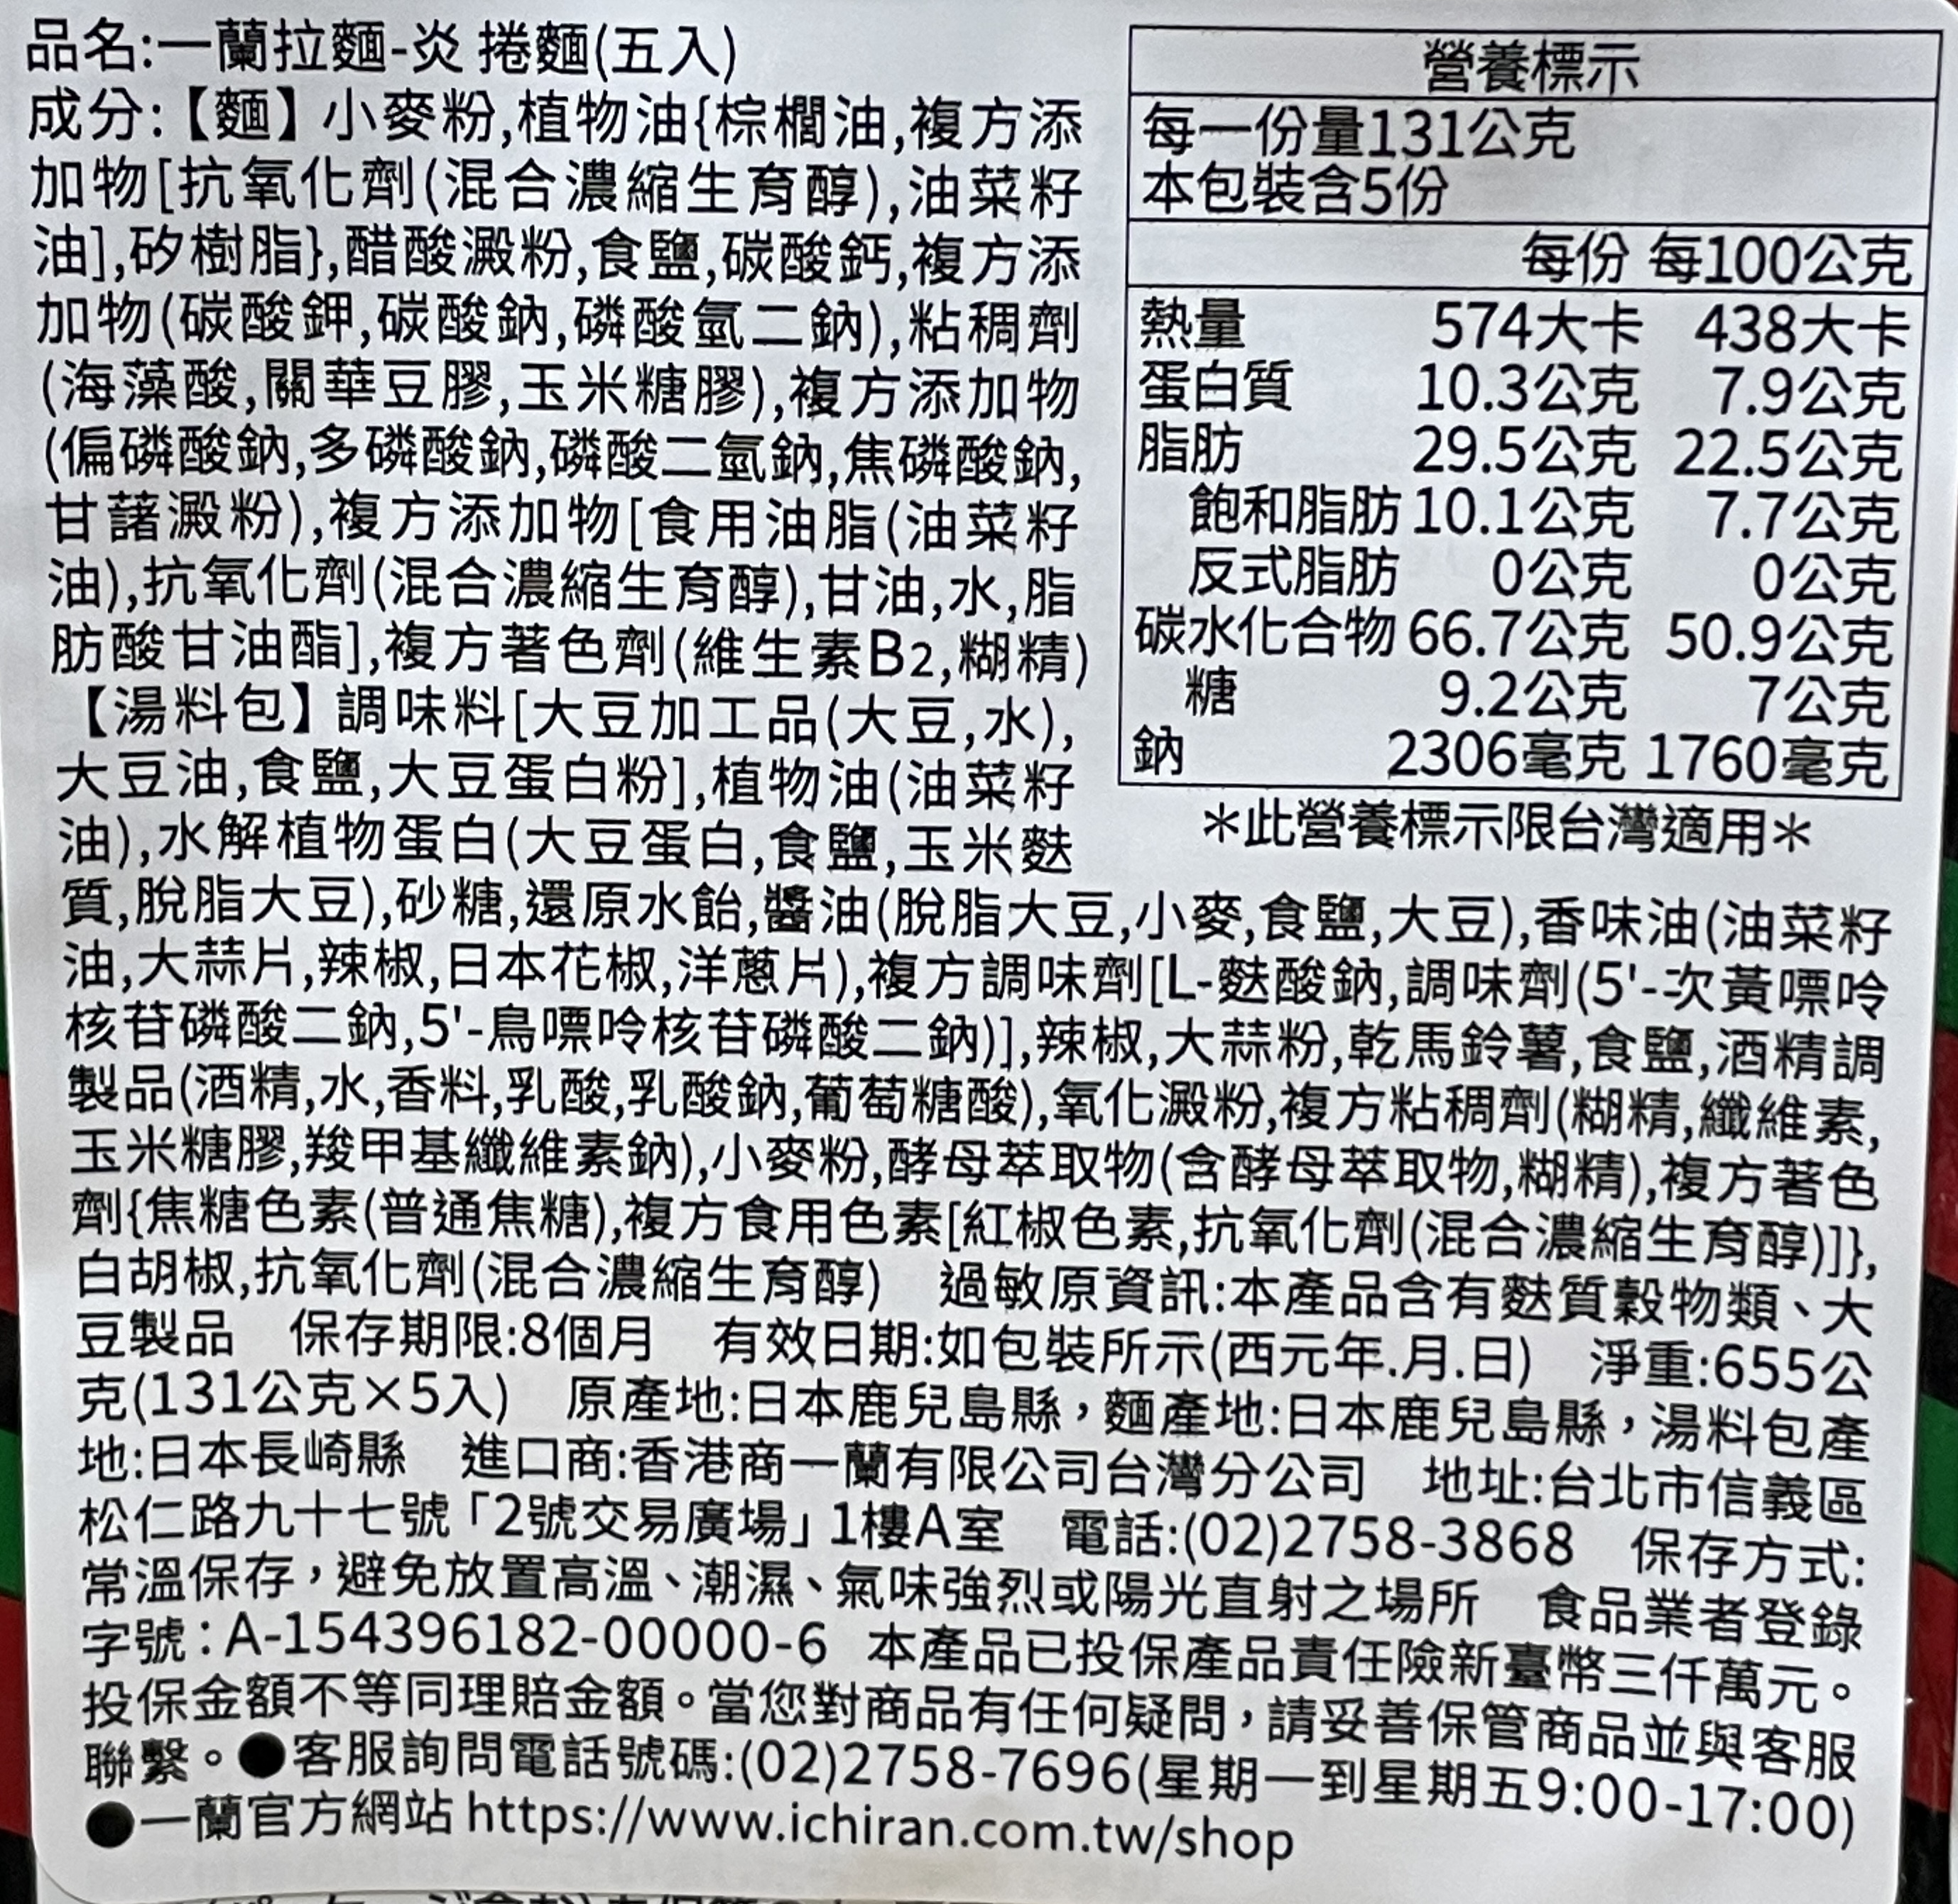 品名:一蘭拉麵-炎 捲麵(五入)
成分:【麵】小麥粉,植物油{棕櫚油,複方添
加物[抗氧化劑(混合濃縮生育醇),油菜籽
油],矽樹脂},醋酸澱粉,食鹽,碳酸鈣,複方添
加物(碳酸鉀,碳酸鈉,磷酸氫二鈉),粘稠劑
(海藻酸,關華豆膠,玉米糖膠),複方添加物
(偏磷酸鈉,多磷酸鈉,磷酸二氫鈉,焦磷酸鈉,
甘藷澱粉),複方添加物[食用油脂(油菜籽
油),抗氧化劑(混合濃縮生育醇),甘油,水,脂
肪酸甘油酯],複方著色劑(維生素B2,糊精)
【湯料包】調味料[大豆加工品(大豆,水),
大豆油,食鹽,大豆蛋白粉],植物油(油菜籽
油),水解植物蛋白(大豆蛋白,食鹽,玉米麩
質,脫脂大豆),砂糖,還原水飴,醬油(脫脂大豆,小麥,食鹽,大豆),香味油(油菜籽
油,大蒜片,辣椒,日本花椒,洋蔥片),複方調味劑[L-麩酸鈉,調味劑(5'-次黃嘌呤
核苷磷酸二鈉,5'-鳥嘌呤核苷磷酸二鈉)],辣椒,大蒜粉,乾馬鈴薯,食鹽,酒精調
製品(酒精,水,香料,乳酸,乳酸鈉,葡萄糖酸),氧化澱粉,複方粘稠劑(糊精,纖維素,
玉米糖膠,羧甲基纖維素鈉),小麥粉,酵母萃取物(含酵母萃取物,糊精),複方著色
劑{焦糖色素(普通焦糖),複方食用色素[紅椒色素,抗氧化劑(混合濃縮生育醇)]},
白胡椒,抗氧化劑(混合濃縮生育醇)　過敏原資訊:本產品含有麩質穀物類、大
豆製品　保存期限:8個月　有效日期:如包裝所示(西元年.月.日)　淨重:655公
克(131公克×5入)　原產地:日本鹿兒島縣，麵產地:日本鹿兒島縣，湯料包產
地:日本長崎縣　進口商:香港商一蘭有限公司台灣分公司　地址:台北市信義區
松仁路九十七號「2號交易廣場」1樓A室　電話:(02)2758-3868　保存方式:
常溫保存，避免放置高溫、潮濕、氣味強烈或陽光直射之場所　食品業者登錄
字號：A-154396182-00000-6 本產品已投保產品責任險新臺幣三仟萬元。
投保金額不等同理賠金額。當您對商品有任何疑問，請妥善保管商品並與客服
聯繫。●客服詢問電話號碼:(02)2758-7696(星期一到星期五9:00-17:00)
●一蘭官方網站https://www.ichiran.com.tw/shop
營養標示
每一份量131公克
本包裝含5份
每份 每100公克
熱量 574大卡 438大卡
蛋白質 10.3公克 7.9公克
脂肪 29.5公克 22.5公克
飽和脂肪 10.1公克 7.7公克
反式脂肪 0公克 0公克
碳水化合物 66.7公克 50.9公克
糖 9.2公克 7公克
鈉 2306毫克 1760毫克
＊此營養標示限台灣適用＊